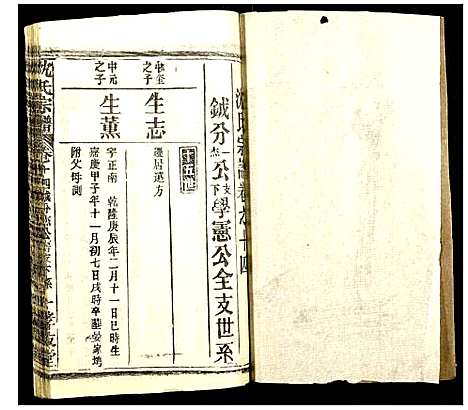 沈氏宗譜卷之十四
鉞分一杰公支下學憲公全支世系
十五世
中奎之子
生志
遷居遠方
中元之子
生薰
字正南 乾隆庚辰年二月十一日巳時生
嘉慶甲子年十一月初七日戌時卒墓晏家塆
附父母側
沈氏宗譜